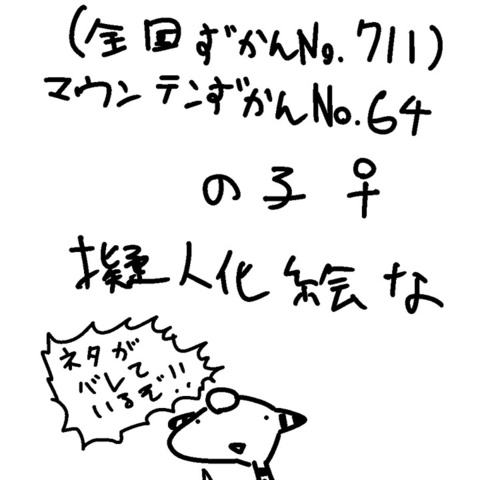 (全国ずかんNo.711)
マウンテンずかんNo.64
の子♀
擬人化絵な
ネタが
バレて
いるぞ!!